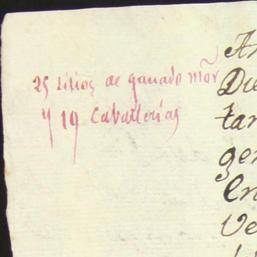 25 sitios de ganado mõr
y 19 Caballerias
An
Die
tar
ger
En
Ve